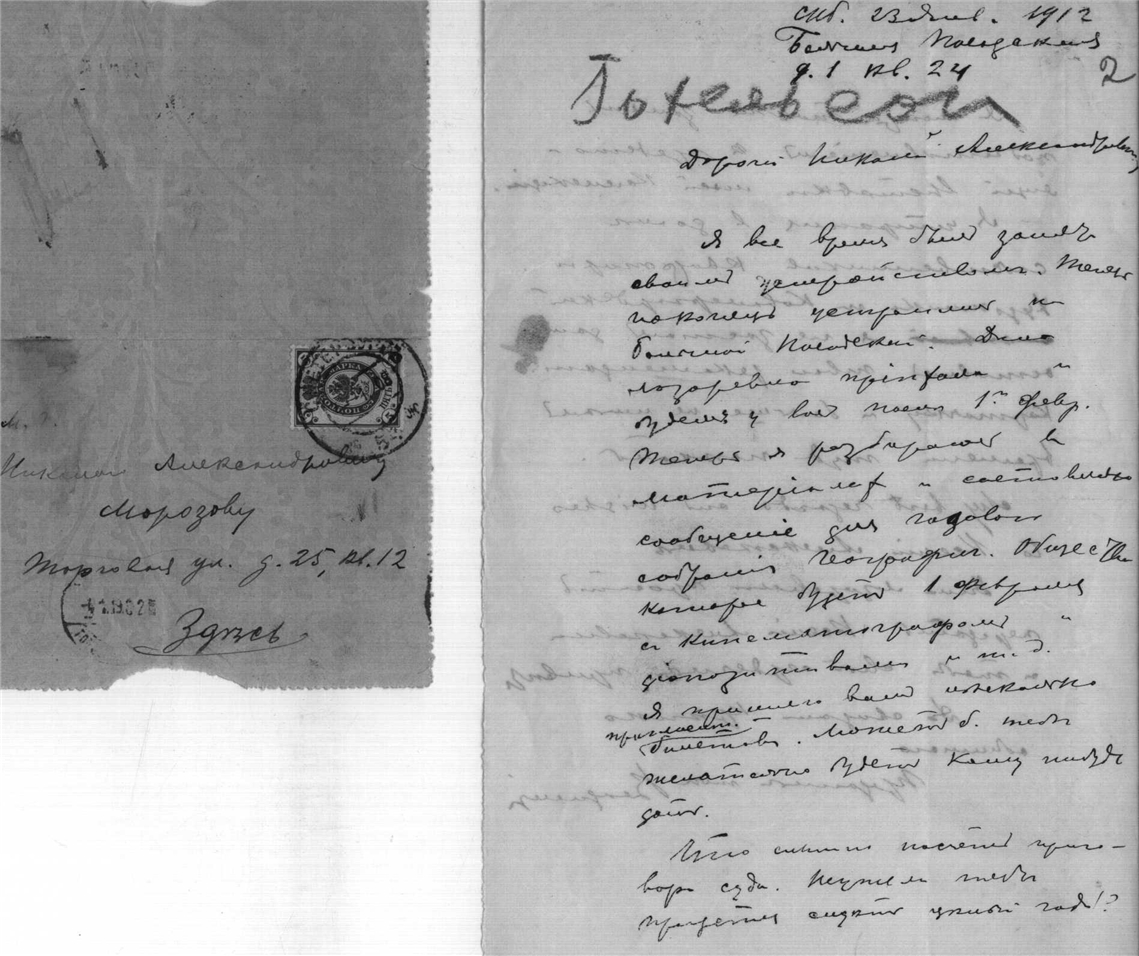 М.
Николаю Александровичу
Морозову
Торговая ул. д. 25, кв. 12
Здѣсь
Спб. 23 Янв. 1912
Большая
д. 1 кв. 24
2
Дорогой Николай Александрович
Я все время был занят
своим устройством. Теперь
наконец устроился на
Большой
Лазаревна пріѣхала и
будем у вас после 1го февр.
Теперь я разбираюсь в
матеріалах и составляю
сообщеніе для годового
собрания Географич. Общества
которое будет 1 февраля
с кинематографом и
діапозитивами и т.д.
Я пришлю вам несколько
пригласит.
билетов. Может б. тебе
желательно будет кому нибудь
дать.
Что слышно насчет приго-
вора суда. Неужели тебе
придется сидеть целый год!?